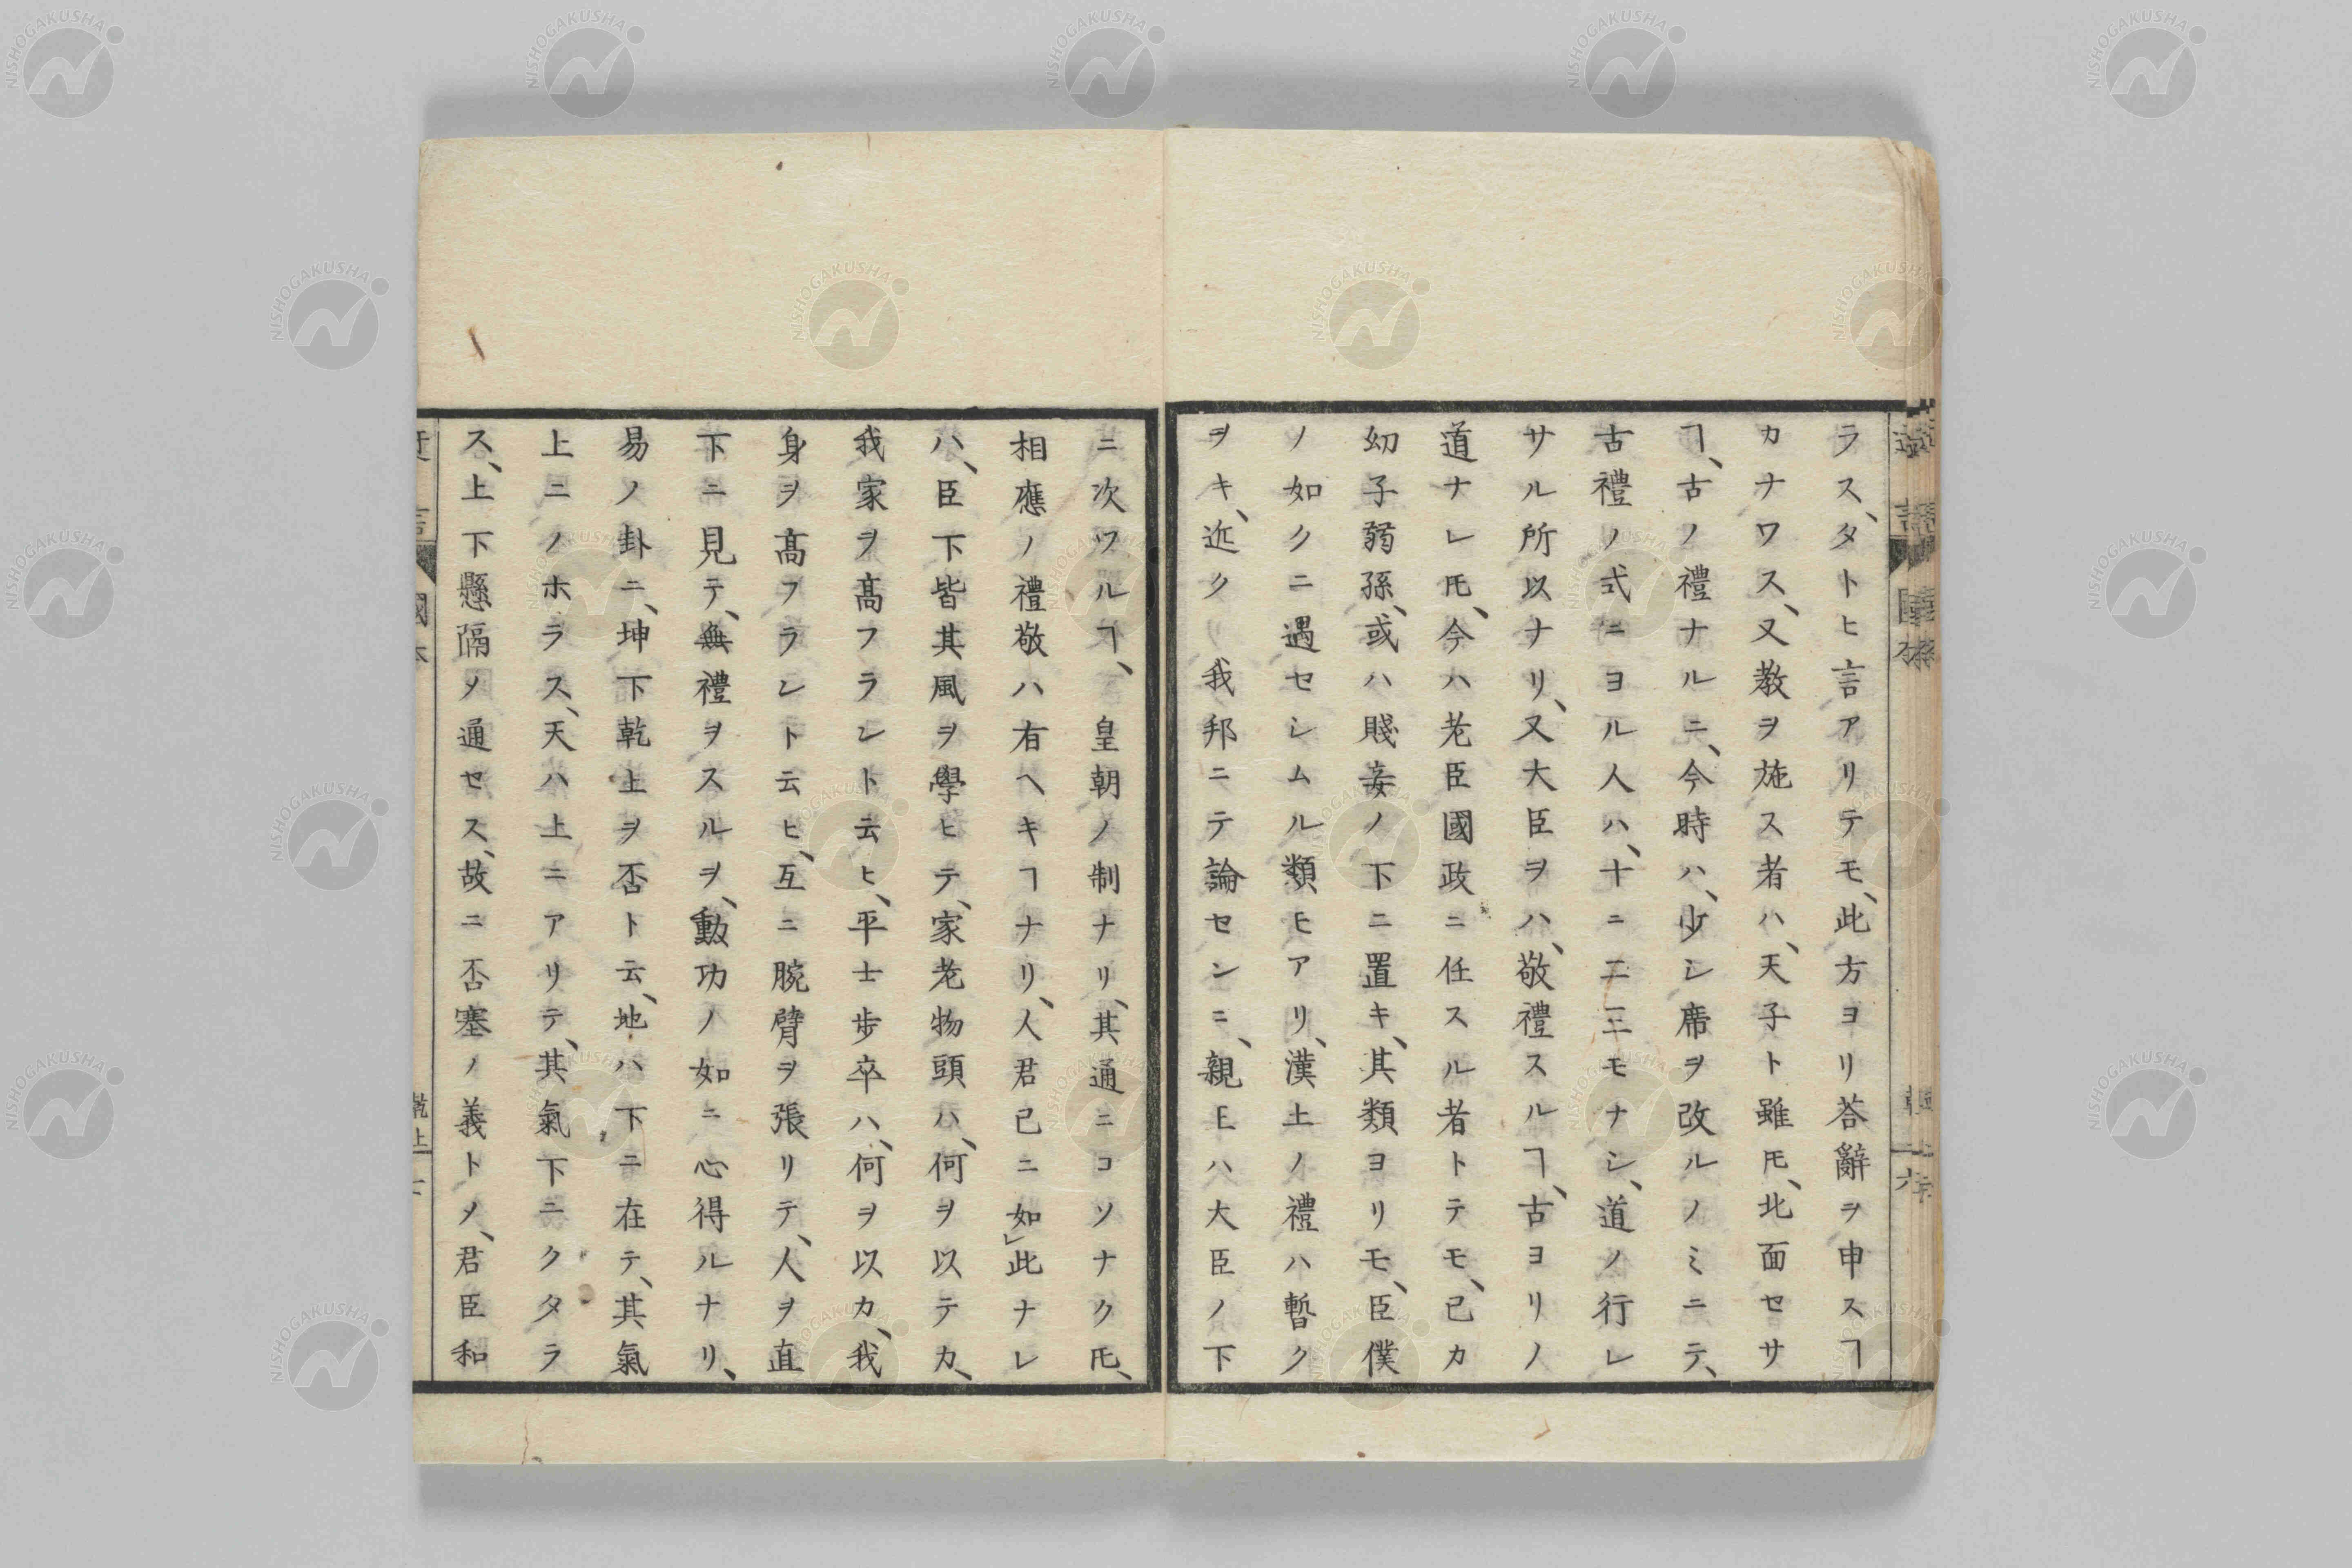 ラス、タトヒ言アリテモ、此方ヨリ荅辭ヲ申スヿ
カナワス、又教ヲ施ス者ハ、天子ト雖𪜈、北面セサ
ヿ、古ノ禮ナルニ、今時ハ、少シ席ヲ改ルノミニテ、
古禮ノ式ニヨル人ハ、十ニ二三モナシ、道ノ行レ
サル所以ナリ、又大臣ヲハ、敬禮スルヿ、古ヨリノ
道ナレ𪜈、今ハ老臣國政ニ任スル者トテモ、己カ
幼子弱孫、或ハ賤妾ノ下ニ置キ、其類ヨリモ、臣僕
ノ如クニ遇セシムル類モアリ、漢土ノ禮ハ暫ク
ヲキ、近クリ我邦ニテ論センニ、親王ハ大臣ノ下
ニ次ワルヿ、 皇朝ノ制ナリ、其通ニコソナク𪜈、
相應ノ禮敬ハ有ヘキヿナリ、人君己ニ如㆑此ナレ
ハ、臣下皆其風ヲ學ヒテ、家老物頭ハ、何ヲ以テカ、
我家ヲ髙フラント云ヒ、平士歩卒ハ、何ヲ以カ、我
身ヲ髙フラント云ヒ、互ニ腕臂ヲ張リテ、人ヲ直
下ニ見テ、無禮ヲスルヲ、勳功ノ如ニ心得ルナリ、
易ノ卦ニ、坤下乾上ヲ否ト云、地ハ下ニ在テ、其氣
上ニノホラス、天ハ上ニアリテ、其氣下ニクタラ
ス、上下懸隔メ通セス、故ニ否塞ノ義トメ、君臣和
國本
乾上
NISHOGAKUSHA